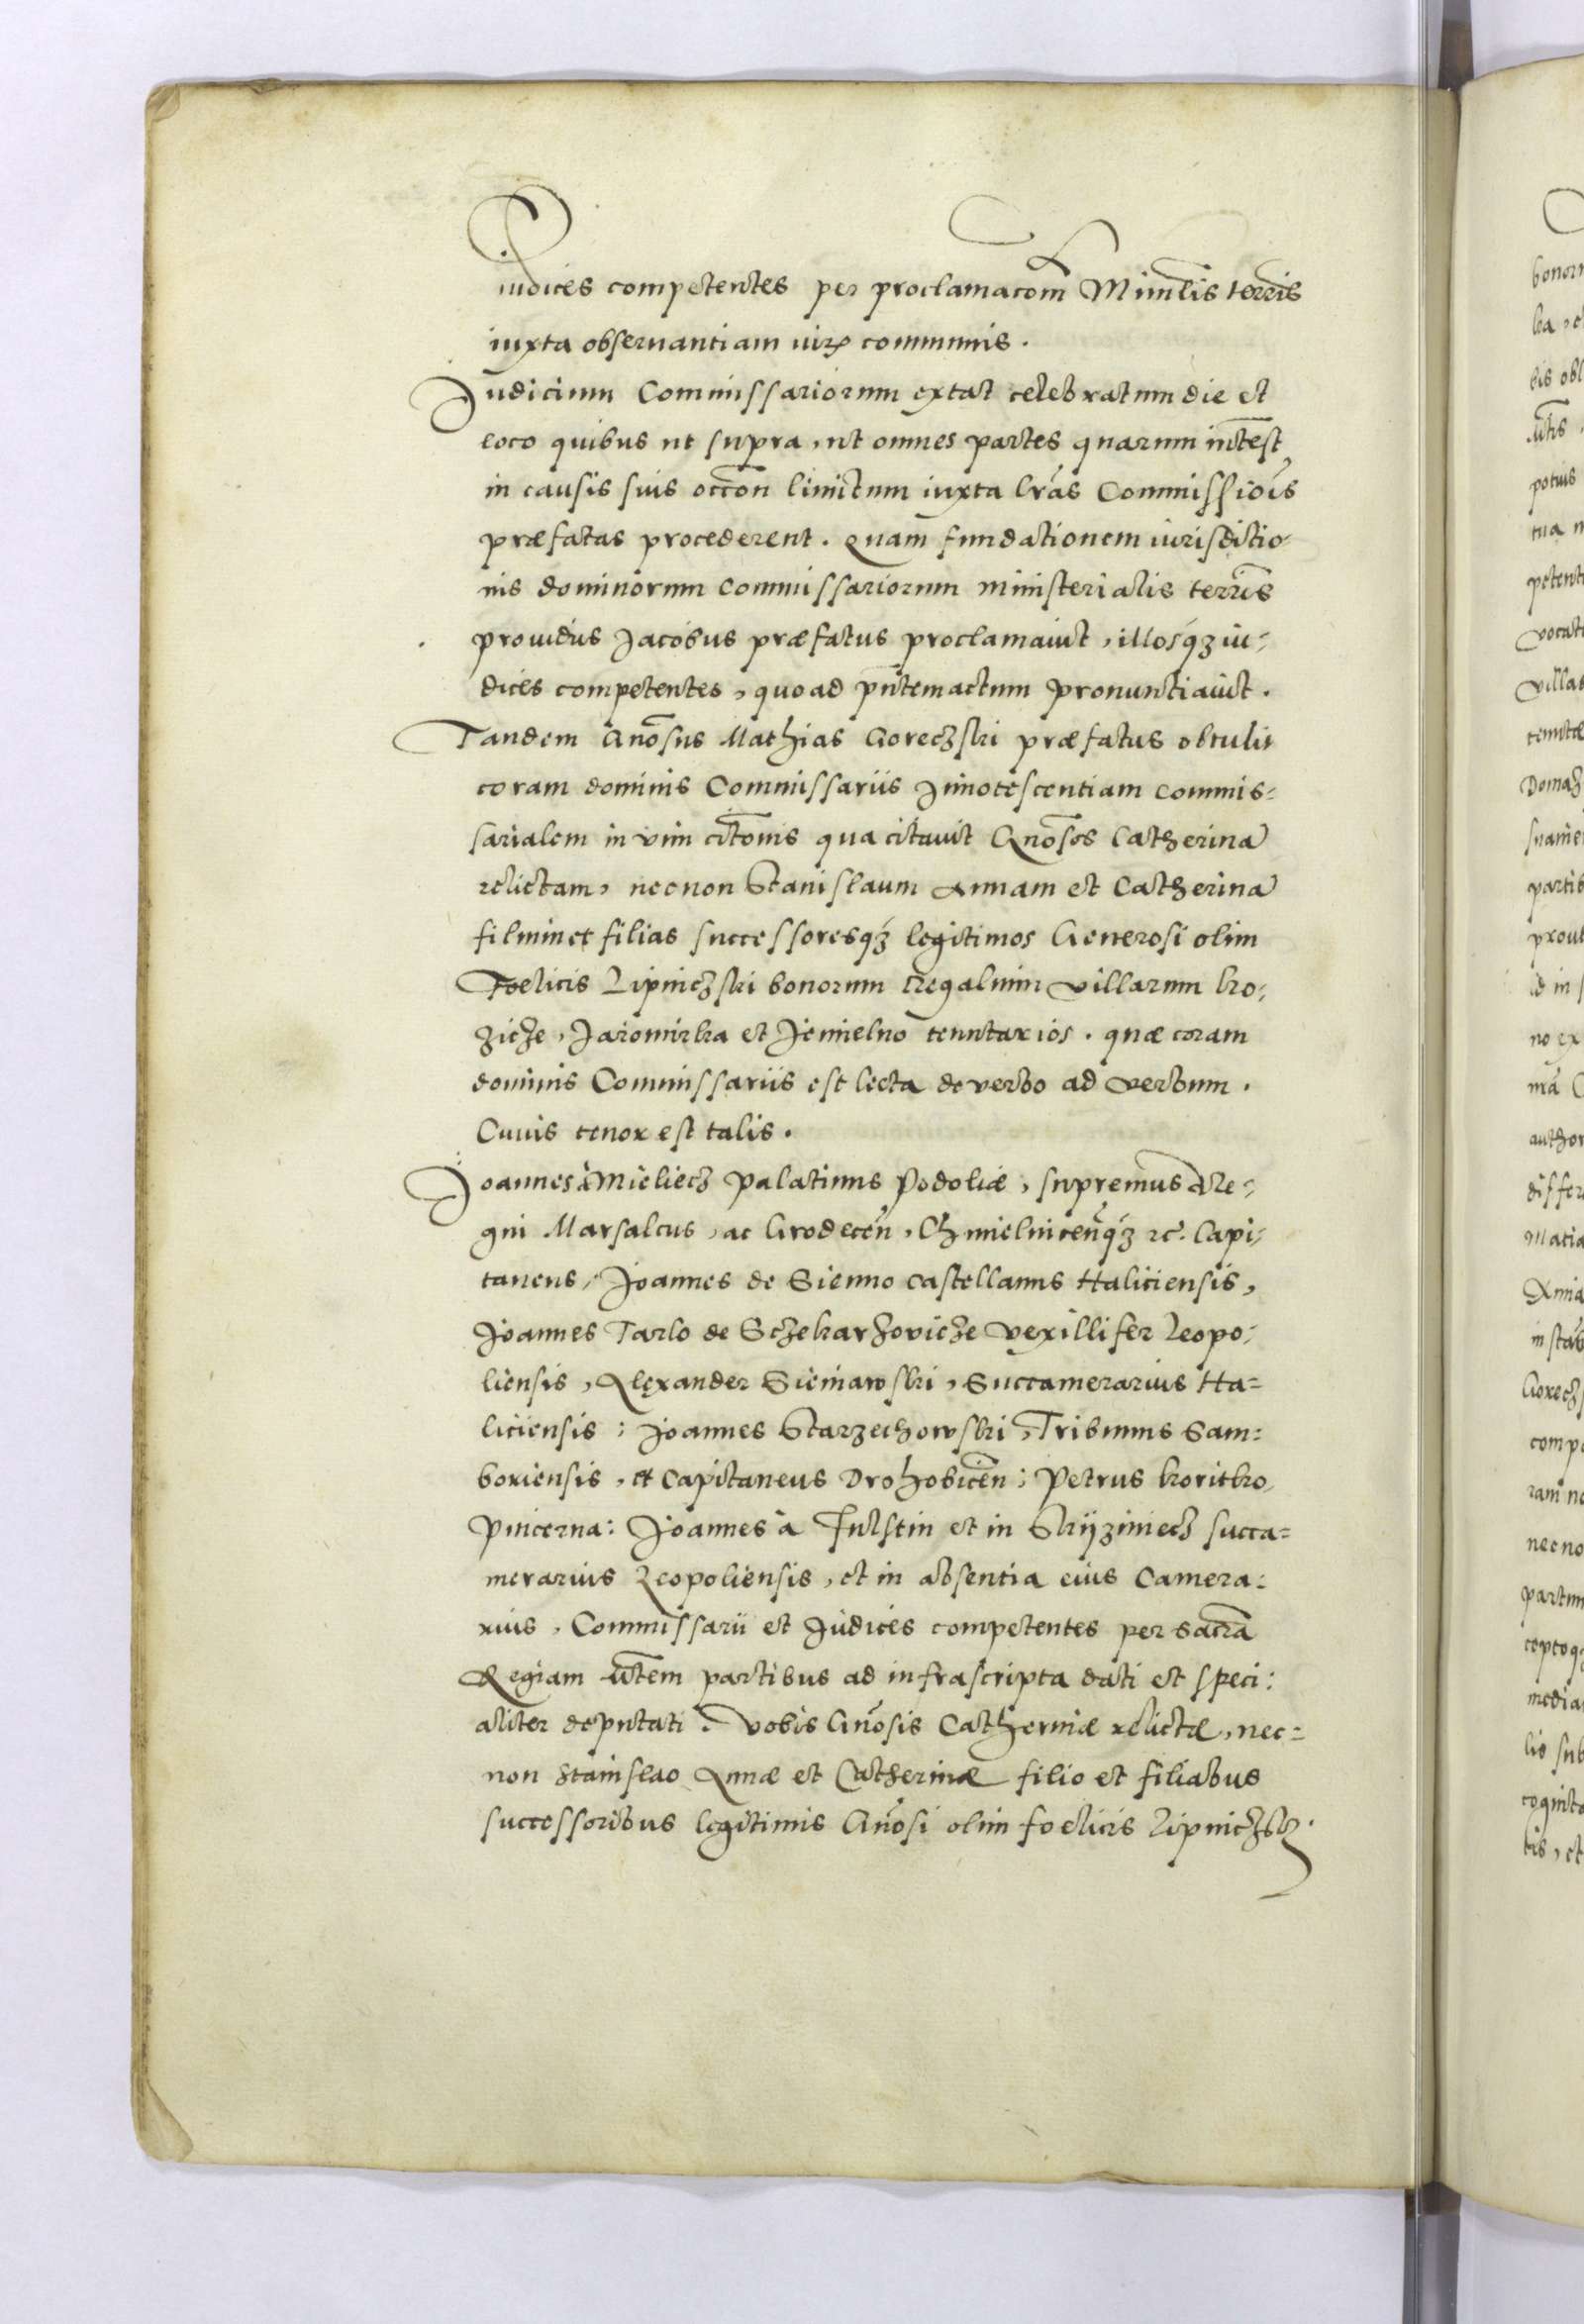 iudices competentes per proclamacōm Minrlis terrēis
iuxta obseruantiam iuriȝ communis.
Judicium Commissariorum extat celebratum die et
loco quibus ut supra, ut omnes partes quarum intēest
in causis suis occōn limitum iuxta lrās Commissiois
præfatas procederent. Quam fundationem iurisdictio-
nis dominorum Commissariorum ministerialis terrēis
prouidus Jacobus præfatus proclamauit, illosqȝ iu-
dices competentes, quoad pn̄tem actum pronuntiauit.
Tandem Gnōsus Mathias Goreczski præfatus obtulit
coram dominis Commissariis Innotescentiam commis-
sarialem in vim citōnis qua citauit Gnōsos Catherinā
relictam, necnon Stanislaum Annam et Catherinā
filium et filias successoresqȝ legitimos Generosi olim
Foelicis Lipniczski bonorum regalium villarum kro-
zicze, Jaromirka et Jemielno tenutarios. quæ coram
dominis Commissariis est lecta de verbo ad verbum.
Cuius tenor est talis.
Joannes à Mieliecz Palatinus Podoliæ, supremus Re-
gni Marsalcus, ac Grodecēn, Chmielnicēnqȝ &c. Capi-
taneus, Joannes de Sienno Castellanus Haliciensis,
Joannes Tarlo de Sczekarzovicze vexillifer Leopo-
liensis, Alexander Sieniawski, Succamerarius Ha-
liciensis: Joannes Starzechowski, Tribunus Sam-
boriensis, et Capitaneus Drohobicēn: Petrus koritko
Pincerna: Joannes à Fulstin et in Skrziziniecz succa-
merarius Leopoliensis, et in absentia eius Camera-
rius, Commissarii et Judices competentes per Sacrā
Regiam Mtēm partibus ad infrascripta dati et speci-
aliter deputati. Vobis Gnōsis Catherinæ relictæ, nec-
non Stanislao Annæ et Catherinæ filio et filiabus
successoribus legitimis Gnōsi olim foelicis Lipniczski.